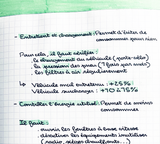 - Entretenir et changement : Permet d'éviter de
consommer pour rien
Pour cela, il faut vérifier :
- le chargement du véhicule (porte-vélo)
- la pression des pneus (1 fois par mois)
- les filtres à air régulièrement
→ Véhicule mal entretenu : +25%
Véhicule surchargé : +10 à 15%
- Contrôler l'énergie utilisé : Permet de moins
consommer
Il faut :
- ouvrir les fenêtres à basse vitesse
- désactiver les équipements inutiles